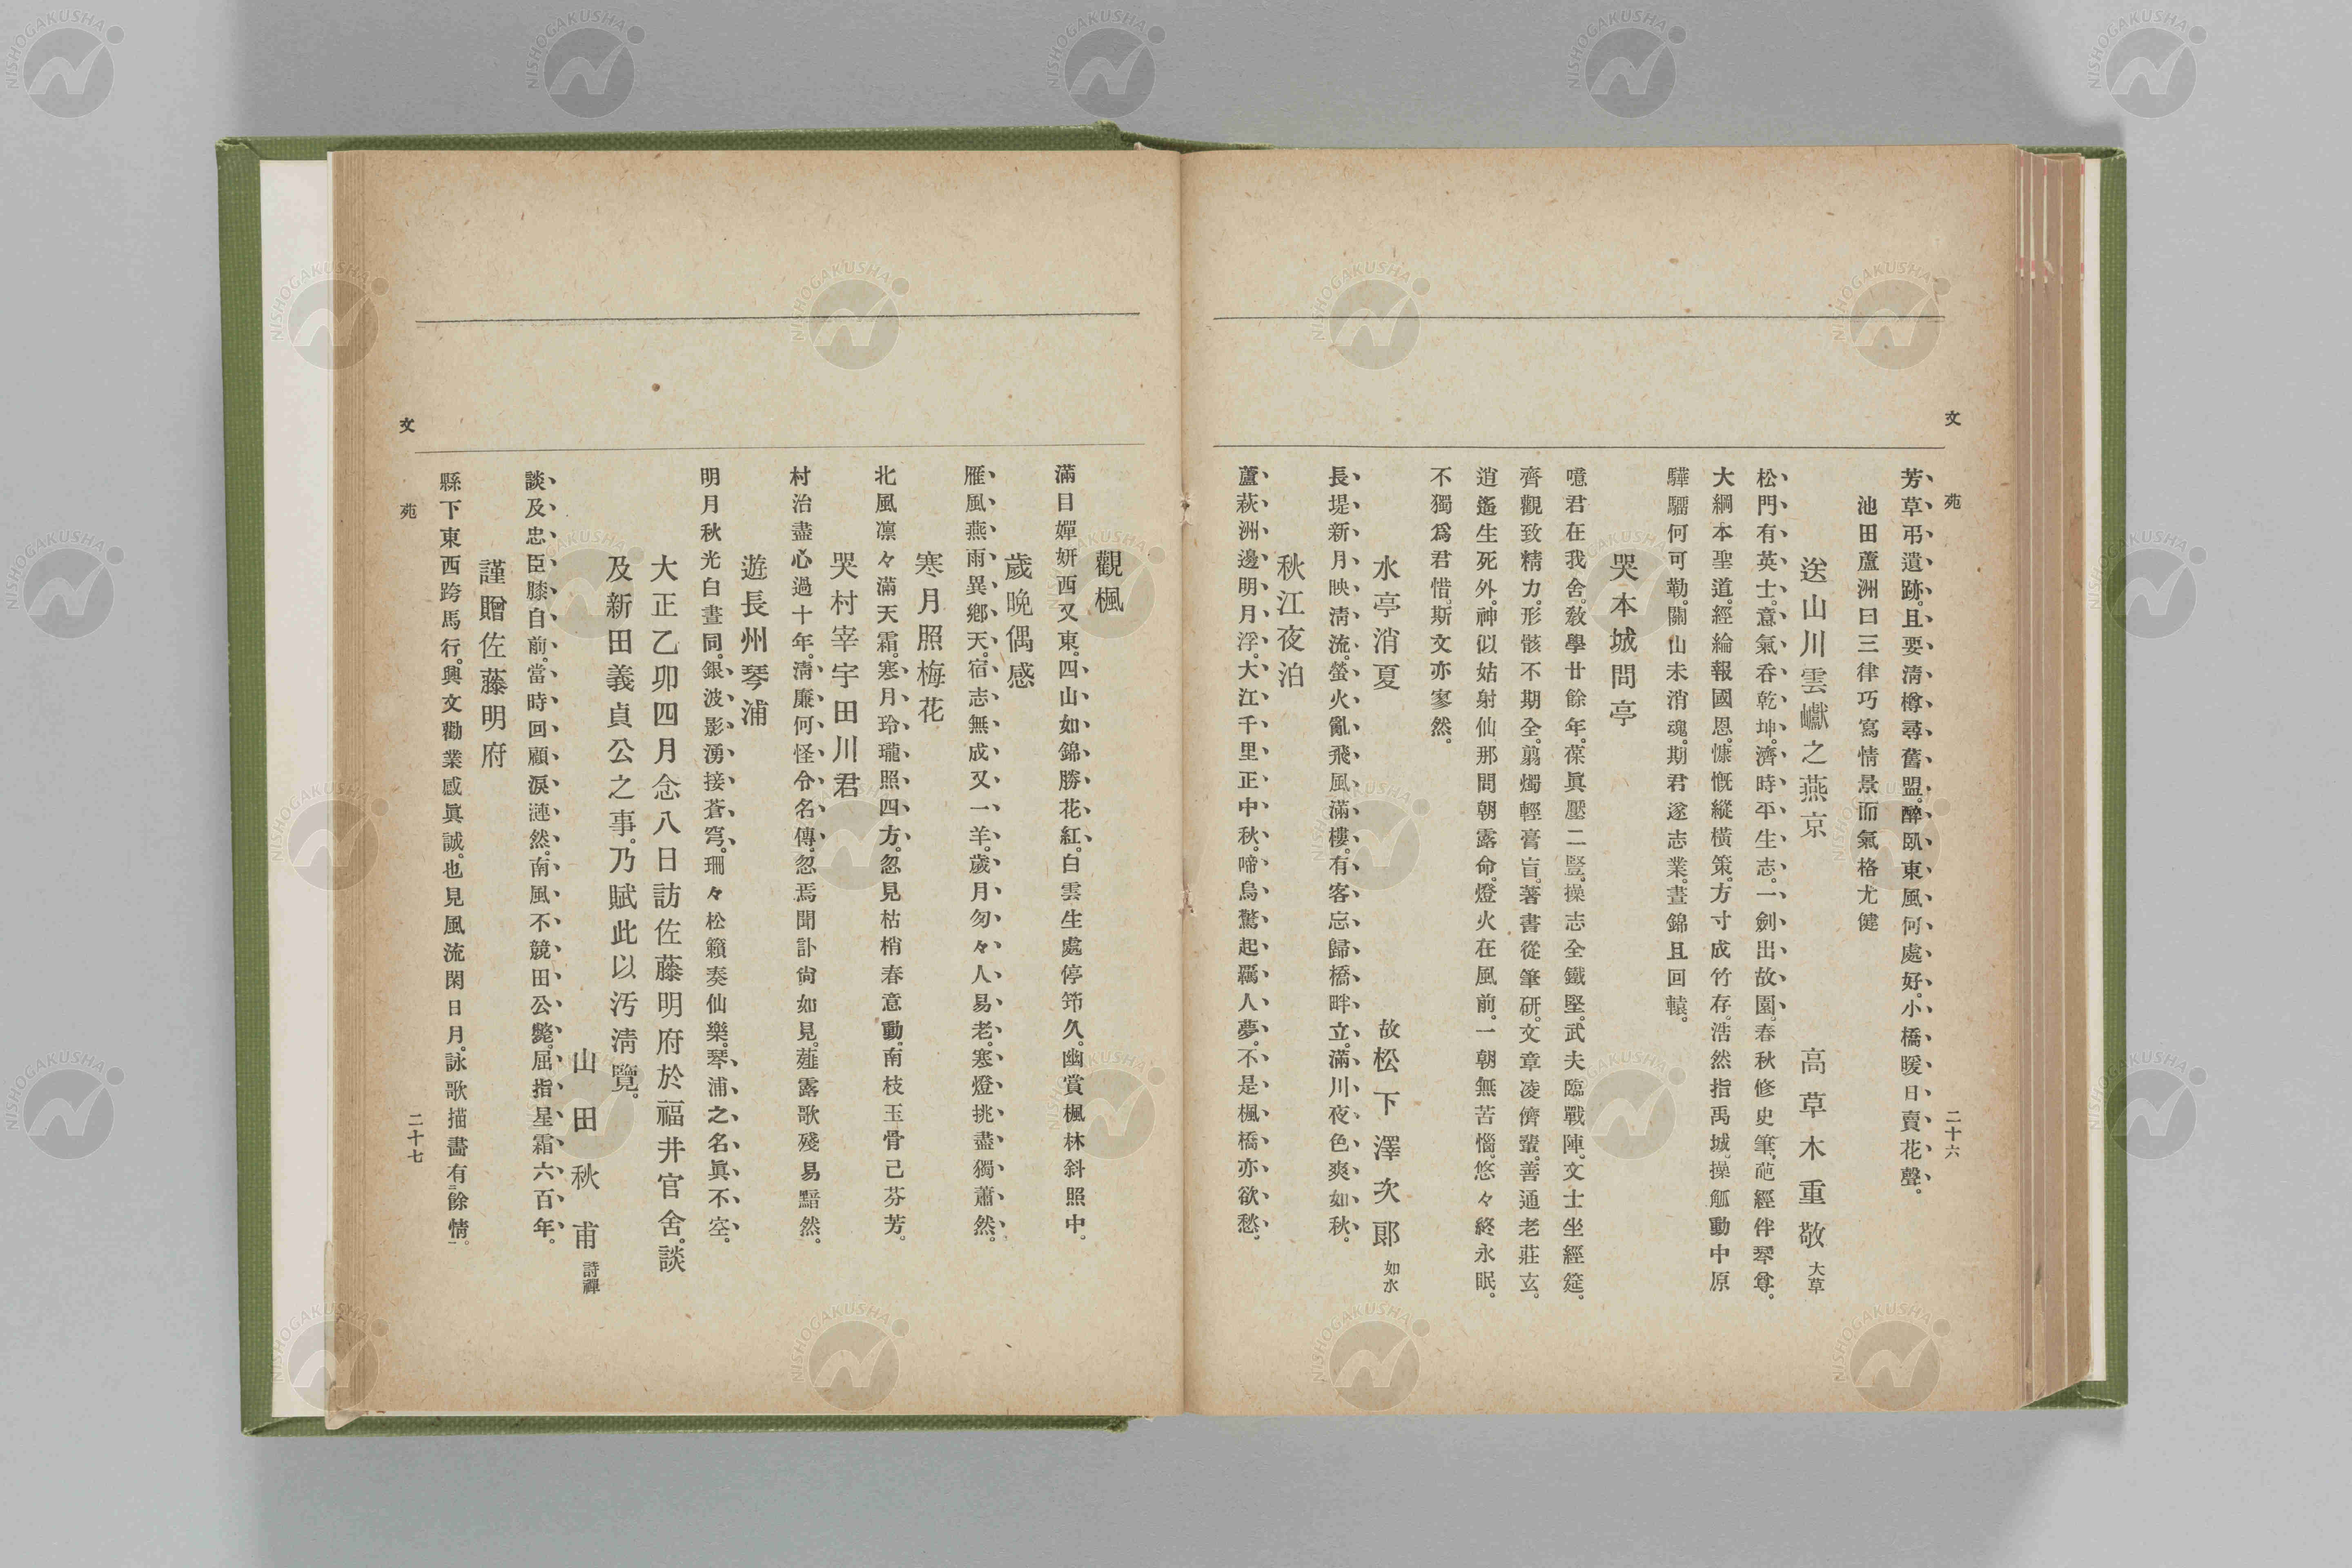 文苑
二十六
芳草弔遺跡。且要淸樽尋舊盟。醉臥東風何處好。小橋暖日賣花聲。
池田蘆洲曰三律巧寫情景而氣格尤健
送山川雲巘之燕京
高草木重敬 大草
松門有英士。意氣呑乾坤。濟時平生志。一劍出故園。春秋修史筆。葩經伴琴尊。
大綱本聖道。經綸報國恩。慷慨縱橫策。方寸成竹存。浩然指禹城。操觚動中原
驊騮何可勒。關山未消魂。期君遂志業。晝錦且回轅。
哭本城問亭
噫君在我舍。敎學廿餘年。葆眞壓二豎。操志全鐵堅。武夫臨戰陣。文士坐經筵。
齊觀致精力。形骸不期全。翦燭輕膏肓。著書從筆硏。文章凌儕輩。善通老莊玄。
逍遙生死外。神似姑射仙那問朝露命。燈火在風前。一朝無苦惱。悠々終永眠。
不獨爲君惜。斯文亦寥然。
水亭消夏
故松下澤次郞 如水
長堤新月映淸流。螢火亂飛風滿樓。有客忘歸橋畔立。滿川夜色爽如秋。
秋江夜泊
蘆萩洲邊明月浮。大江千里正中秋。啼烏驚起羈人夢。不是楓橋亦欲愁。
觀楓
滿目嬋姸西又東。四山如錦勝花紅。白雲生處停筇久。幽賞楓林斜照中。
歲晚偶感
雁風燕雨異鄕天。宿志無成又一羊。歲月匆々人易老。寒燈挑盡獨蕭然。
寒月照梅花
北風凛々滿天霜。寒月玲瓏照四方。忽見枯梢春意動。南枝玉骨己芬芳。
哭村宰宇田川君
村治盡心過十年。淸廉何怪令名傳。忽焉聞訃尙如見。薤露歌殘易黯然。
遊長州琴浦
明月秋光白晝同。銀波影湧接蒼穹。珊々松籟奏仙樂。琴浦之名眞不空。
大正乙卯四月念八日訪佐藤明府於福井官舍。談
及新田義貞公之事。乃賦此以汚淸覽。
山田秋甫 詩禪
談及忠臣膝自前。當時回顧淚漣然。南風不競田公斃。屈指星霜六百年。
謹贈佐藤明府
縣下東西跨馬行。興文勸業感眞誠。也見風流閑日月。詠歌描畵有餘情。
文苑
二十七